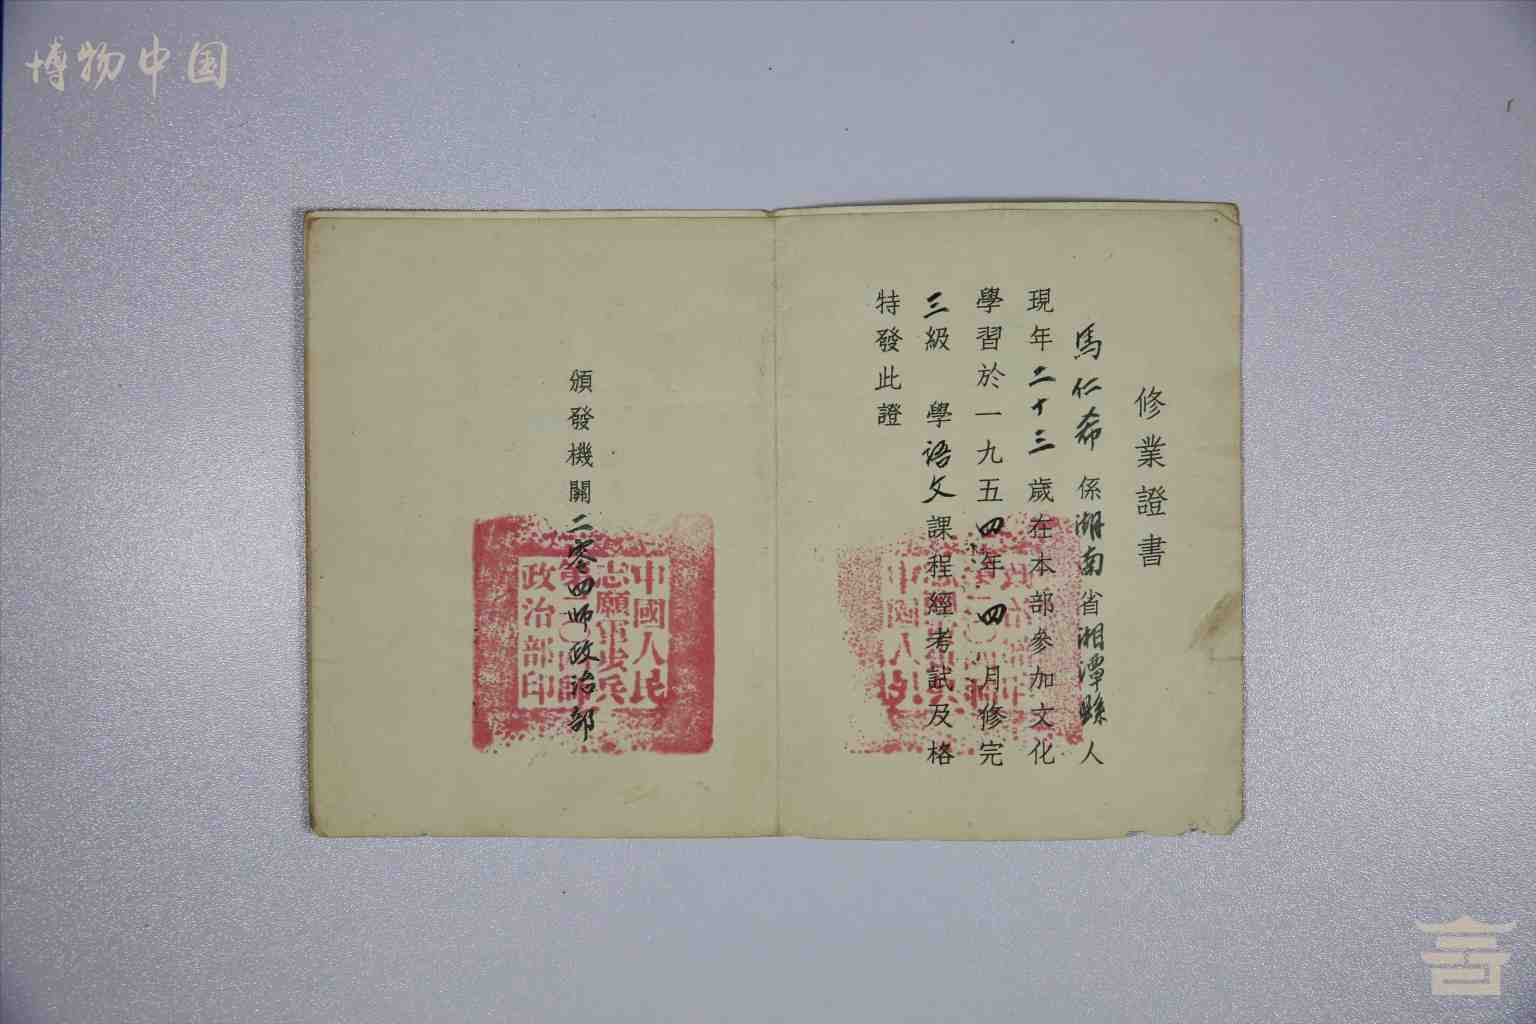 博物中国
修業證書
馬仁希係湖南省湘潭縣人
現年二十三歲在本部參加文化
學習於一九五四年四月修完
三級 學語文課程經考試及格
特發此證
頒發機關二零四師政治部
中國人民
志願軍步兵
第二〇四師
政治部印